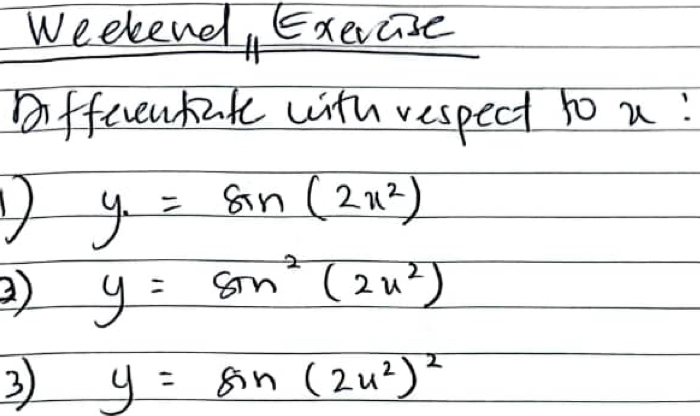 Weekend Exercise
Differentiate with respect to x :
1) y = sin (2x²)
2) y = sin² (2x²)
3) y = sin (2x²)²